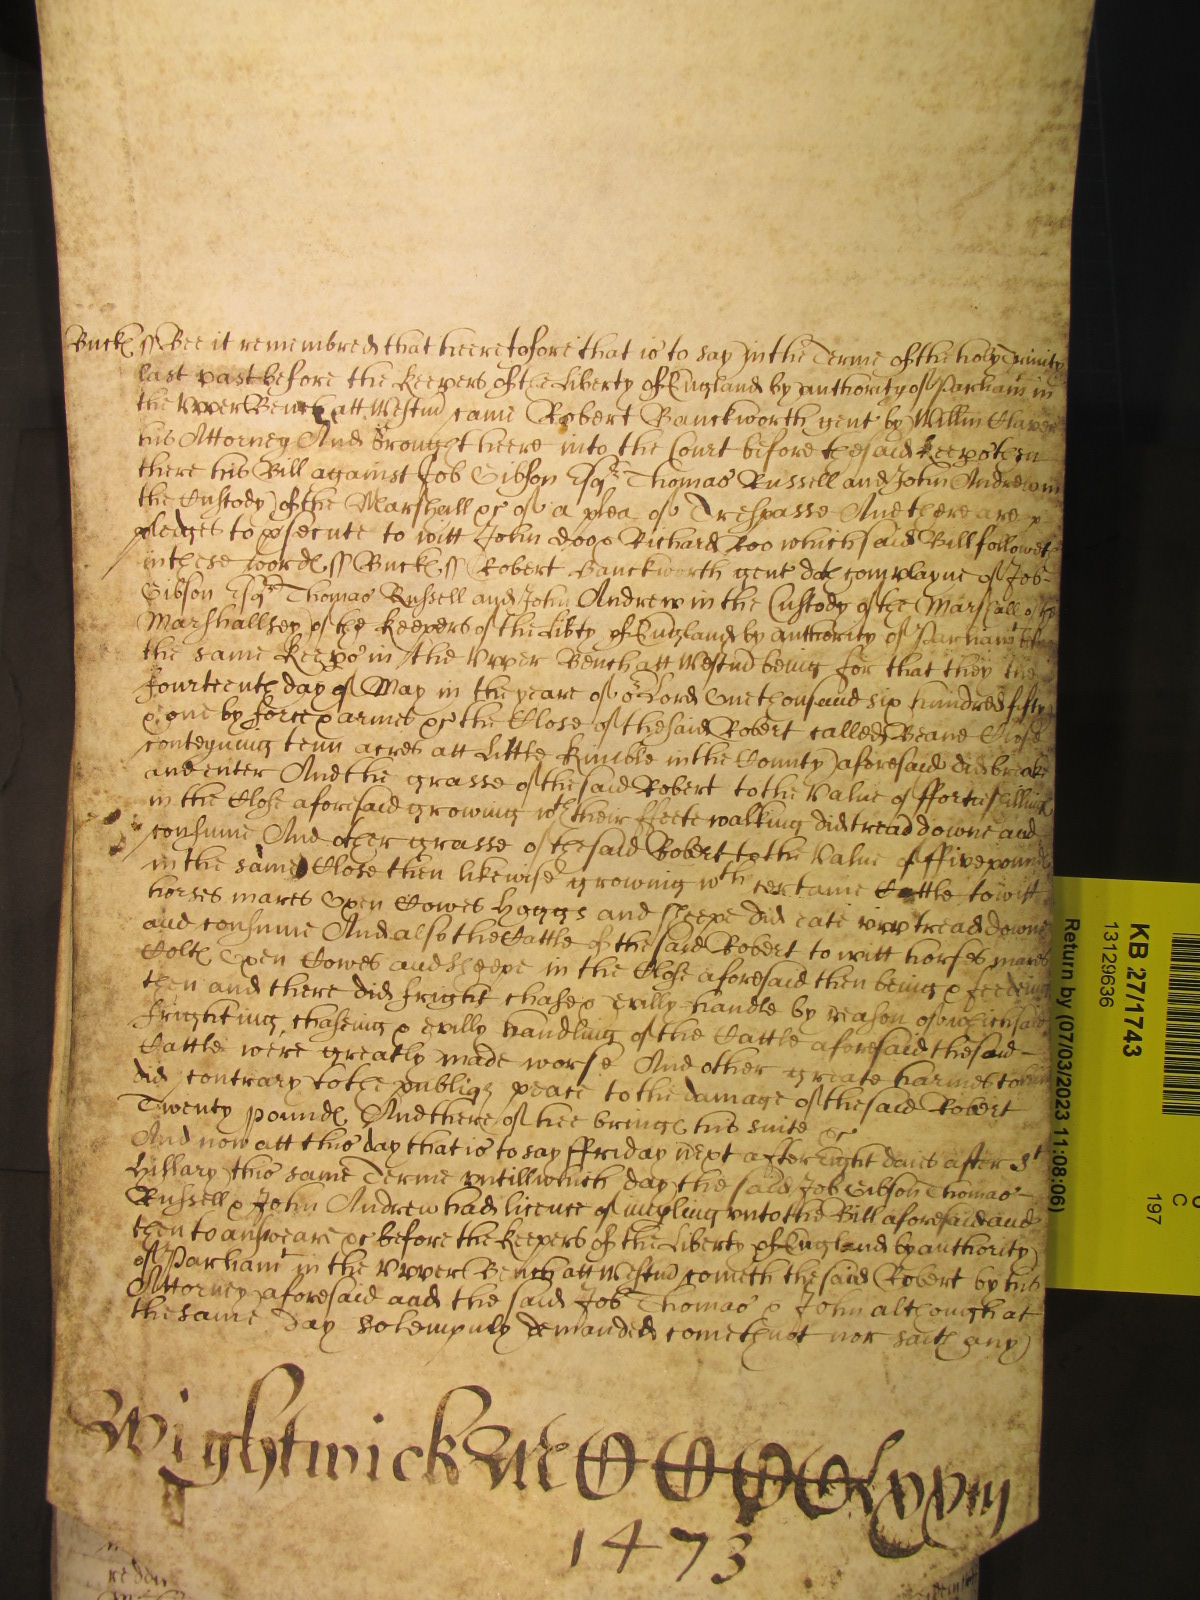 Buck ss Bee it remembred that heeretofore that is to say in the Terme of the holy Trinity
last past before the Keepers of the Liberty of England by authority of Parliam in
the Upper Bench att Westm came Robert Banckworth gent by Willm
his Attorney And brought heere into the Court before the said Keepers then
there his Bill against Job Gibson Esqr Thomas Russell and John Andrew in
the Custody of the Marshall &c of a plea of Trespasse And there are
pledges to psecute to witt John Doo & Richard Roo which said Bill followeth
in these words ss Buck ss Robert Banckworth gent doth complayne of Job
Gibson Esqr Thomas Russell and John Andrew in the Custody of the Marshall of the
Marshallsey of the Keepers of the Libty of England by authority of Parliamt
the same Keeps in the Upper Bench att Westm being for that they the
fourteenth day of May in the yeare of or Lord One thousand six hundred fifty
& one by force & armes &c the Close of the said Robert called Beane Close
conteyning tenn acres att Little Kimble in the County aforesaid did breake
and enter And the grasse of the said Robert to the value of ffortie shillings
in the Close aforesaid growing wth their ffeete walking did tread downe and
consume And other grasse of the said Robert to the value of ffive pounds
in the same Close then likewise growing wth certaine Cattle to witt
horses mares Oxen Cowes Hoggs and sheepe did eate upp tread downe
and consume And also the Cattle of the said Robert to witt horses mares
Colts Oxen Cowes and sheepe in the Close aforesaid then being & feeding
then and there did fright chase & evilly handle by reason of which said
frighting, chasing & evilly handling of the Cattle aforesaid the said
Cattle were greatly made worse And other greate harmes to him
did contrary to the publiq peace to the damage of the said Robert
Twenty pounds And thereof hee brings his suite &c
And now att this day that is to say ffriday next after eight daies after St
Hillary this same Terme untill which day the said Job Gibson Thomas
Russell & John Andrew had licence of impling unto the Bill aforesaid and
then to answeare &c before the Keepers of the Liberty of England by authority
of Parliamt in the Upper Bench att Westm cometh the said Robert by his
Attorney aforesaid and the said Job Thomas & John although at
the same day solempnly demanded cometh not nor saith any
Wightwick
1473
KB 27/1743
13129636
Return by (07/03/2023 11:08:06)
C
197